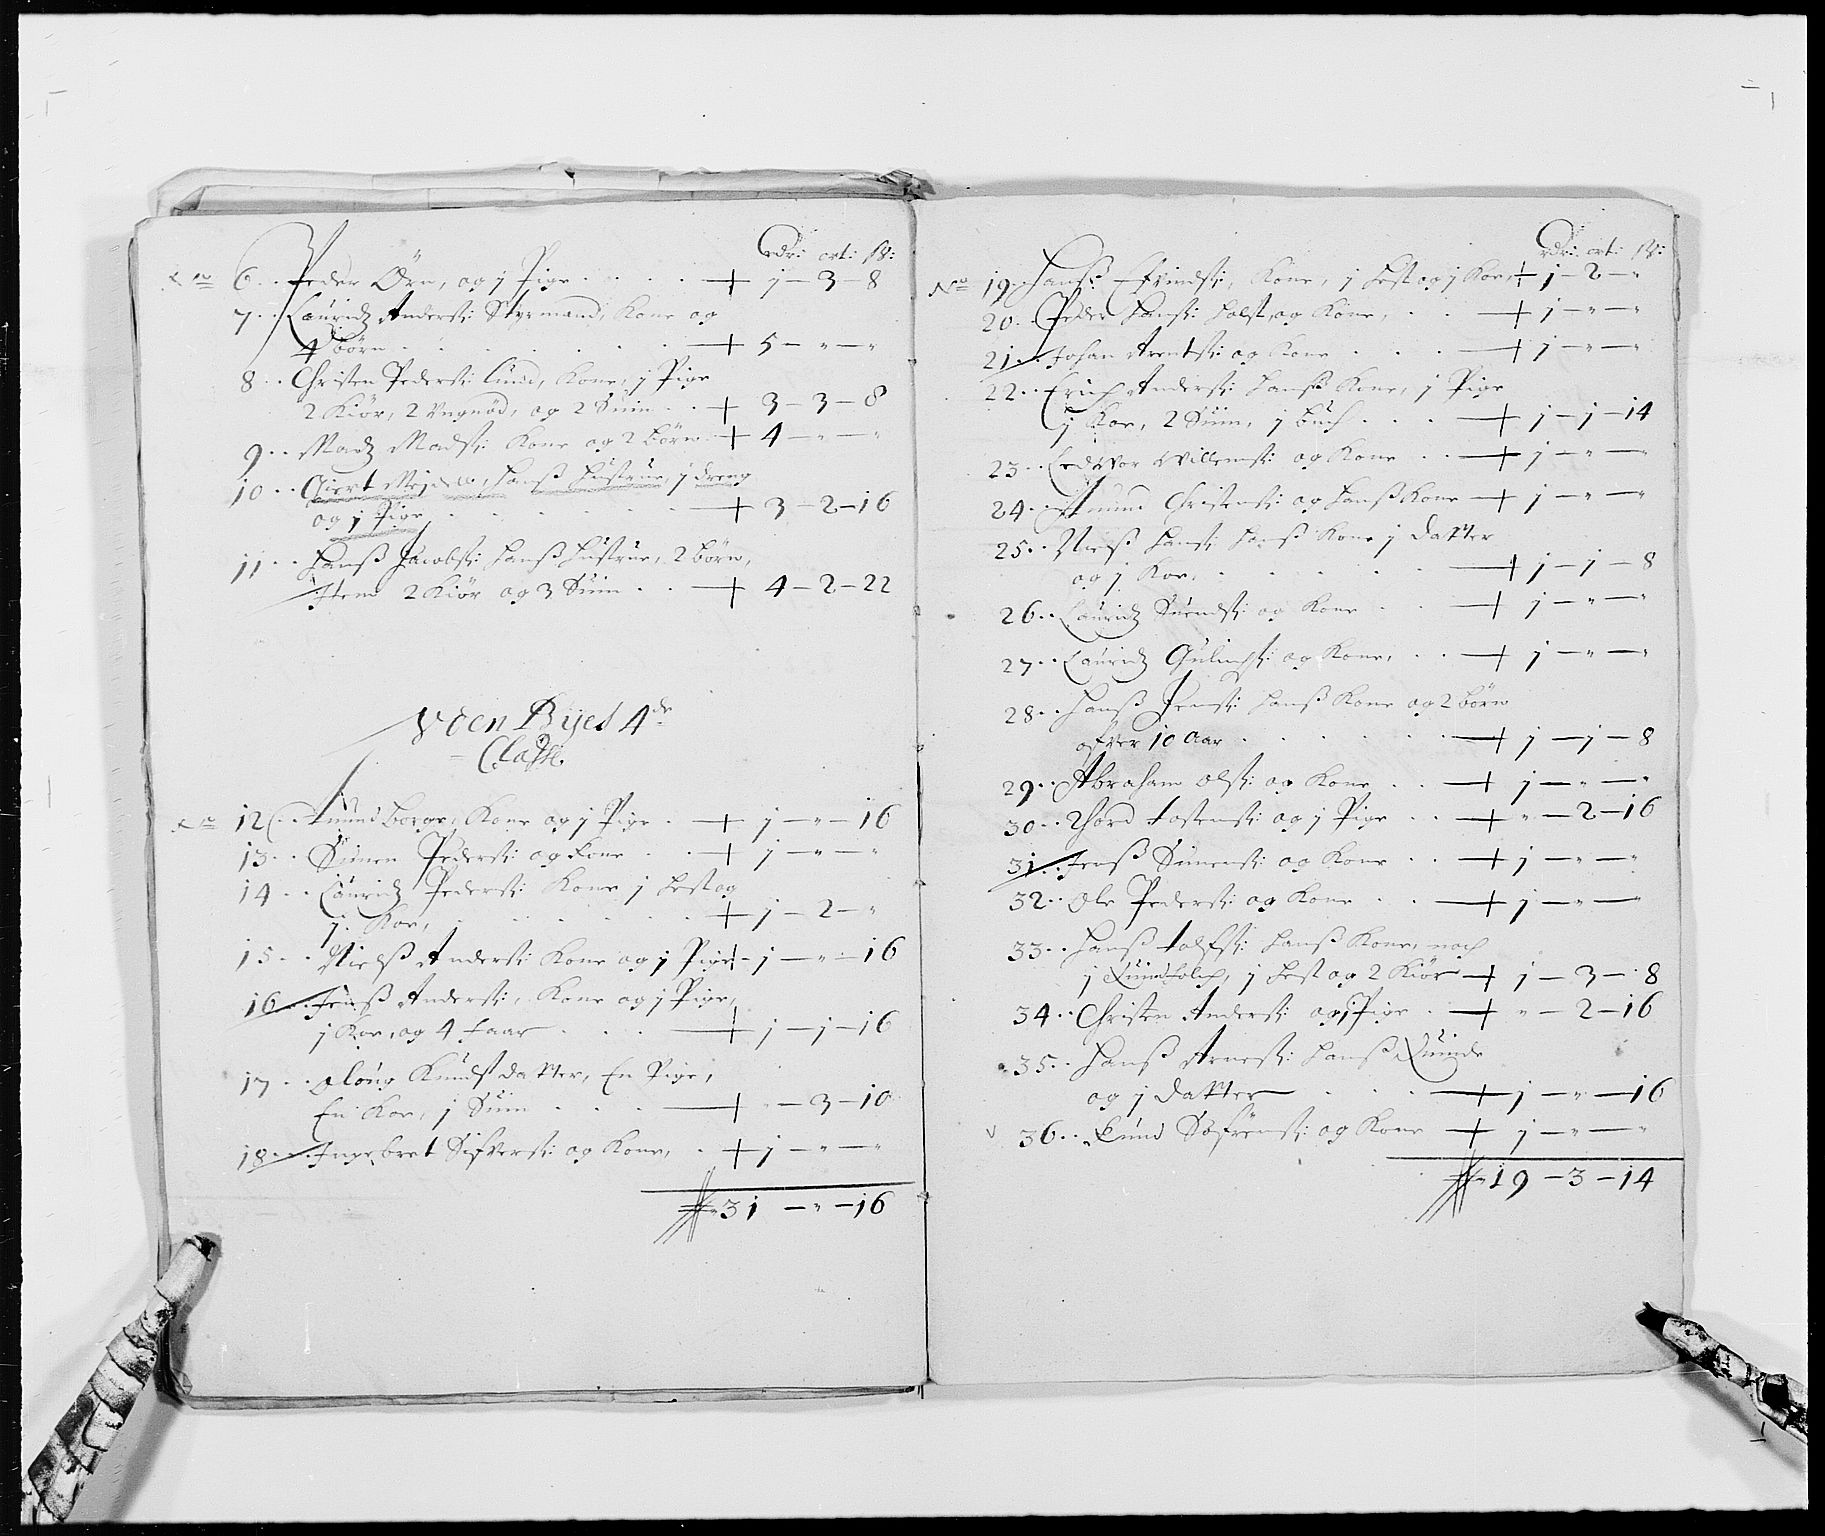 rdr: ort: ß:
No 6. Peder Örn, og j Pige + j - 3 - 8
7. Lauridz Anderß: Styrmand, Kone og
4 börn + 5 - " - "
8. Christen Pederß: Lund, Kone, j Pige
2 Kiör, 2 Ungnöd, og 2 Suin + 3 - 3 - 8
9. Madz Madß: Kone og 2 börn + 4 - " - "
10. Giert Meyer, hanß hustrue, j dreng
og j Pige + 3 - 2 - 16
11. Hanß Jacobß: hanß hustrue, 2 börn,
Item 2 Kiör og 3 Suin + 4 - 2 - 22
Uden Byes 4de
Classe
No 12. Amund borge, Kone og j Pige + j - " - 16
13. Simen Pederß: og Kone + j - " - "
14. Lauridz Pederß: Kone j hest og
j Koe, + j - 2 - "
15. Nielß Anderß: Kone og j Pige + j - " - 16
16. Jenß Anderß: Kone og j Pige,
j Koe, og 4 faar + j - j - 16
17. Oloug Knudsdatter, En Pige,
En Koe, j Suin + " - 3 - 10
18. Ingebret Sifverß: og Kone, + j - " - "
31 - " - 16
rdr: ort: ß:
No 19. Hanß Efvindß: Kone, j hest og j Koe, + j - 2 - "
20. Peder Hanß: Holst, og Kone, + j - " - "
21. Johan Arentß: og Kone + j - " - "
22. Erich Anderß: hanß Kone, j Pige
j Koe, 2 Suin, j buch + j - j - 14
23. Willemß: og Kone + j - " - "
24. Amund Christenß: og hanß Kone + j - " - "
25. Nielß Hanß: hanß Kone j datter
og j Koe, + j - j - 8
26. Lauridz Suendß: og Kone + j - " - "
27. Lauridz Gulichß: og Kone, + j - " - "
28. Hanß Jenß: hanß Kone og 2 börn
ofver 10 aar + j - j - 8
29. Abraham Olß: og Kone + j - " - "
30. Thord Tostenß: og j Pige + " - 2 - 16
31. Jenß Simenß: og Kone + j - " - "
32. Ole Pederß: og Kone + j - " - "
33. Hanß hanß Kone, noch
j Quindfolch, j hest og 2 Kiör + j - 3 - 8
34. Christen Anderß: og j Pige + " - 2 - 16
35. Hanß Arneß: hanß Quinde
og j datter + j - " - 16
36. Knud Söfrenß: og Kone + j - " - "
19 - 3 - 14